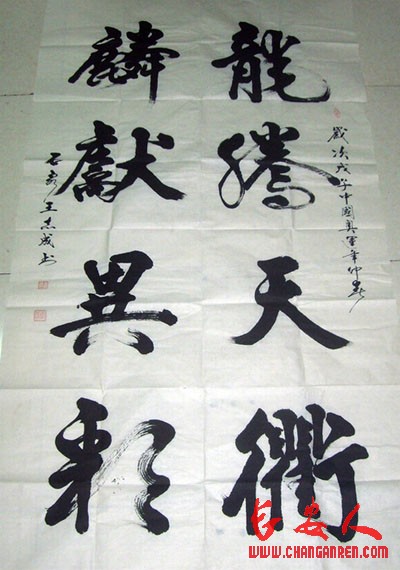 歲次戊子中國奥運年仲春
龍騰天衢
麟獻異彩
王志成书
长安人
WWW.CHANGANREN.COM